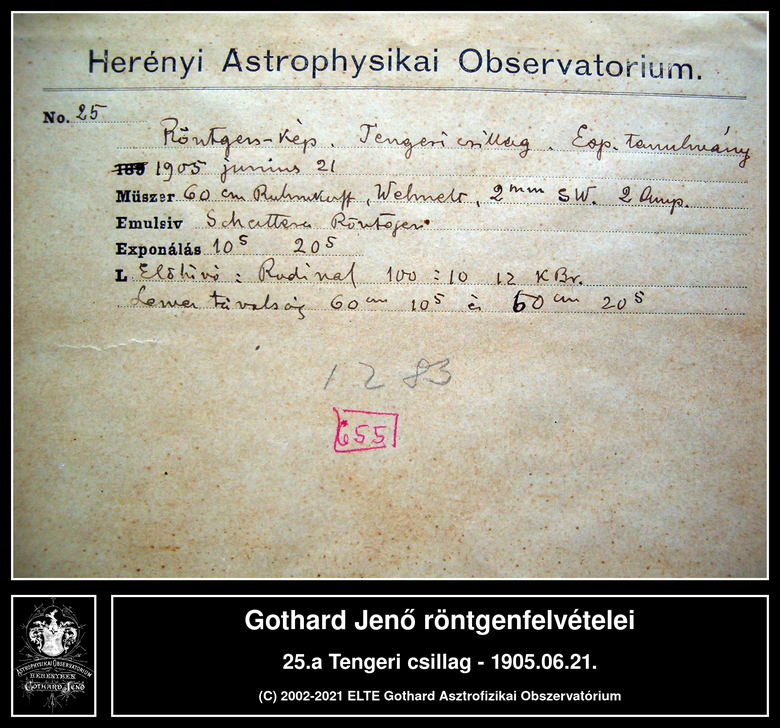 Herényi Astrophysikai Observatorium.
No. 25
Röntgen-kép. Tengeri csillag. Exp. tanulmány
189 1905 junius 21
Műszer 60 cm Ruhmkorff, Wehnelt, 2mm SW. 2 Amp.
Emulsiv Röntgen
Exponálás 10s 20s
L Előhívó: Rodinal 100:10 12 KBr.
távolság 60cm 10s és 60cm 20s
1283
655
ASTROPHYSIKAI OBSERVATORIUM
HERÉNYBEN
GOTHARD JENŐ
Gothard Jenő röntgenfelvételei
25.a Tengeri csillag - 1905.06.21.
(C) 2002-2021 ELTE Gothard Asztrofizikai Obszervatórium